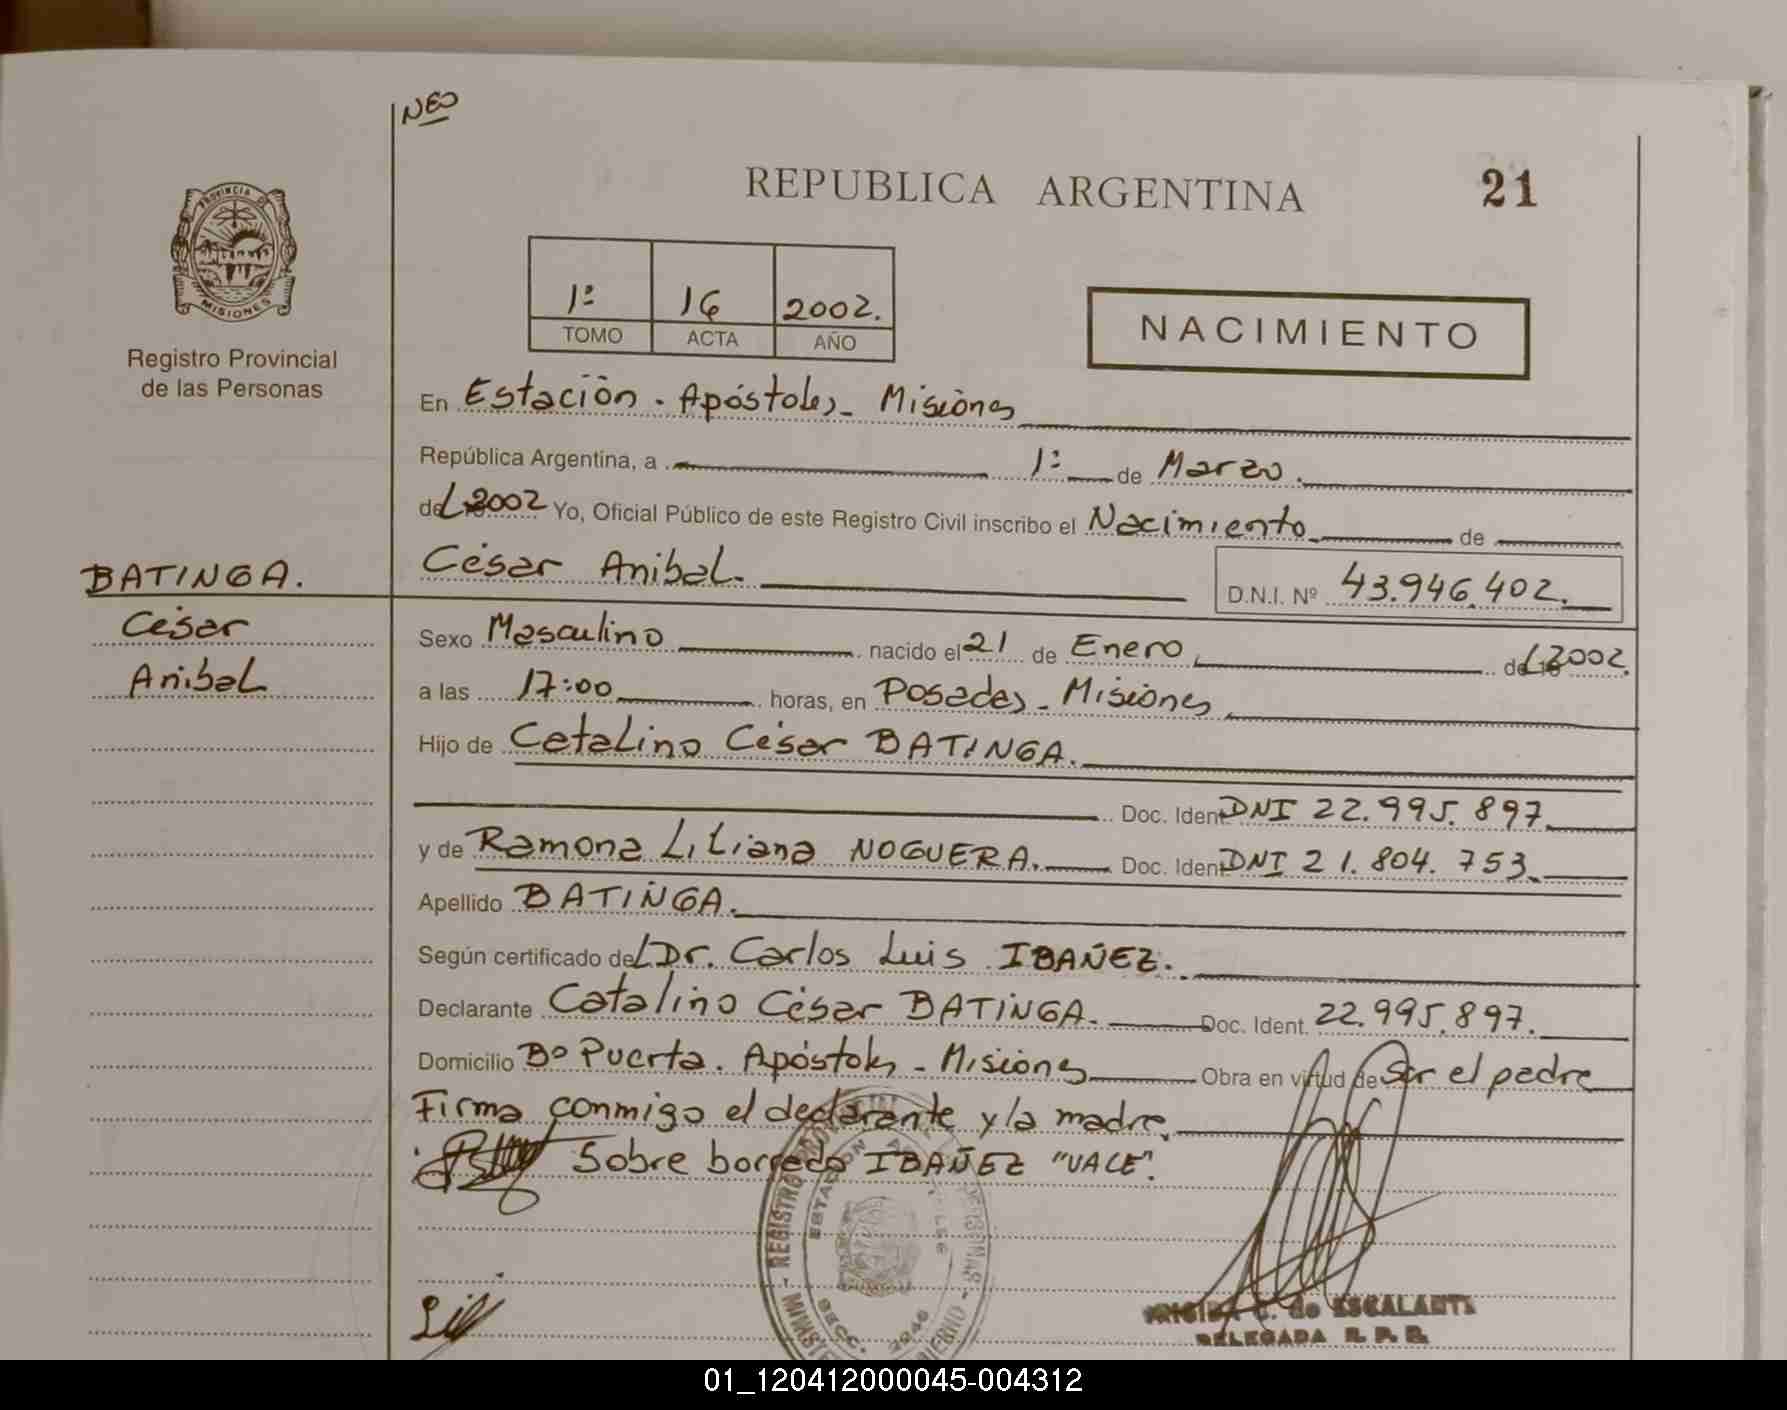 NEO
REPUBLICA ARGENTINA
21
PROVINCIA DE
MISIONES
Registro Provincial
de las Personas
1º 16 2002.
TOMO ACTA AÑO
NACIMIENTO
En Estación - Apóstoles - Misiones
República Argentina, a 1º de Marzo.
del 2002 Yo, Oficial Público de este Registro Civil inscribo el Nacimiento de
César Anibal.
D.N.I. Nº 43.946.402.
BATINGA.
César
Anibal
Sexo Masculino nacido el 21 de Enero del 2002.
a las 17:00 horas, en Posadas - Misiones
Hijo de Catalino César BATINGA.
Doc. Ident. DNI 22.995.897
y de Ramona Liliana NOGUERA. Doc. Ident. DNI 21.804.753.
Apellido BATINGA.
Según certificado del Dr. Carlos Luis IBAÑEZ.
Declarante Catalino César BATINGA. Doc. Ident. 22.995.897.
Domicilio Bº Puerta. Apóstoles - Misiones Obra en virtud de Ser el padre
Firma conmigo el declarante y la madre.
Sobre borrado IBAÑEZ "VALE".
REGISTRO
ESTACION
SECC.
C. de ESCALANTE
DELEGADA R. P. P.
01_120412000045-004312